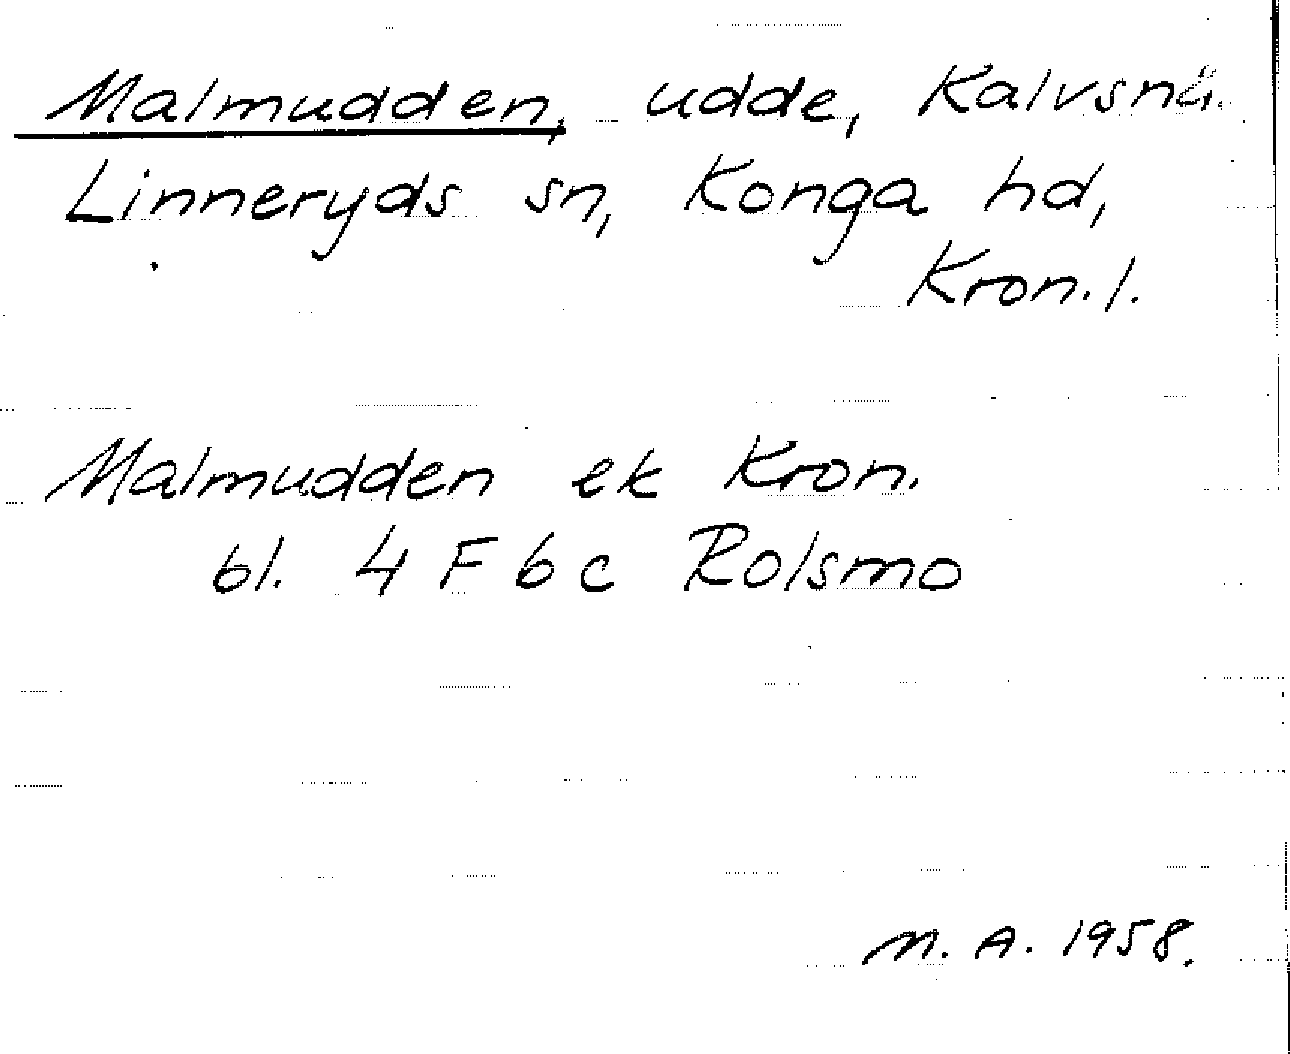 Malmudden, udde, Kalvsnä.
Linneryds sn, Konga hd,
Kron.l.
Malmudden ek Kron.
bl. 4 F 6 c Rolsmo
M. A. 1958.